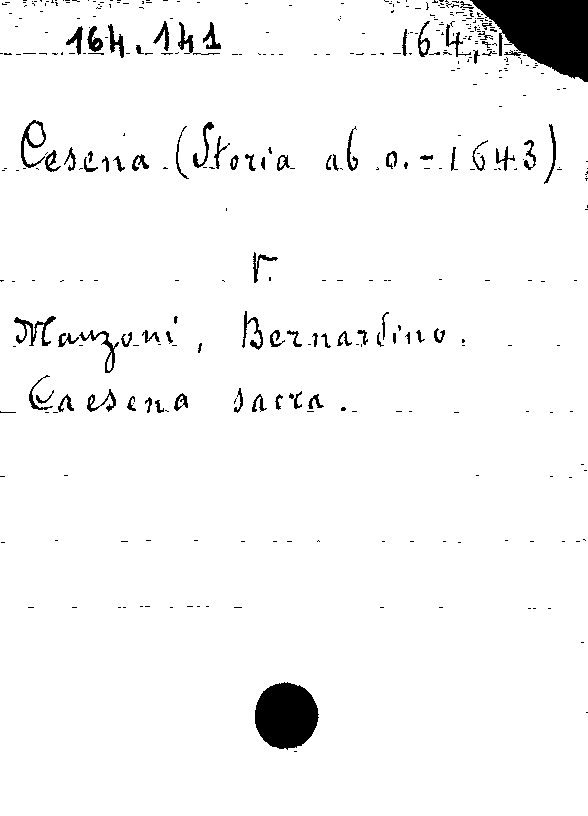 164.141 164,1
Cesena (Storia ab o. - 1643)
V.
Manzoni, Bernardino.
Caesena sacra.